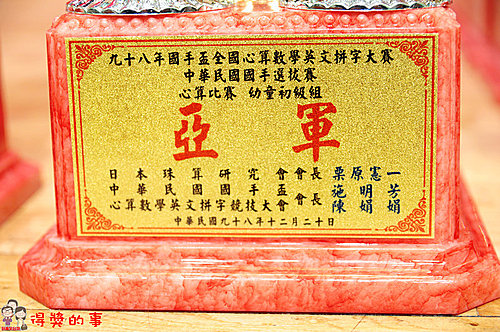 九十八年國手盃全國心算數學英文拼字大賽
中華民國國手選拔賽
心算比賽 幼童初級組
亞 軍
日本珠算研究會會長 栗原憲一
中華民國國手盃 會長 施明芳
心算數學英文拼字競技大會 會長 陳娟娟
中華民國九十八年十二月二十日
得獎的事